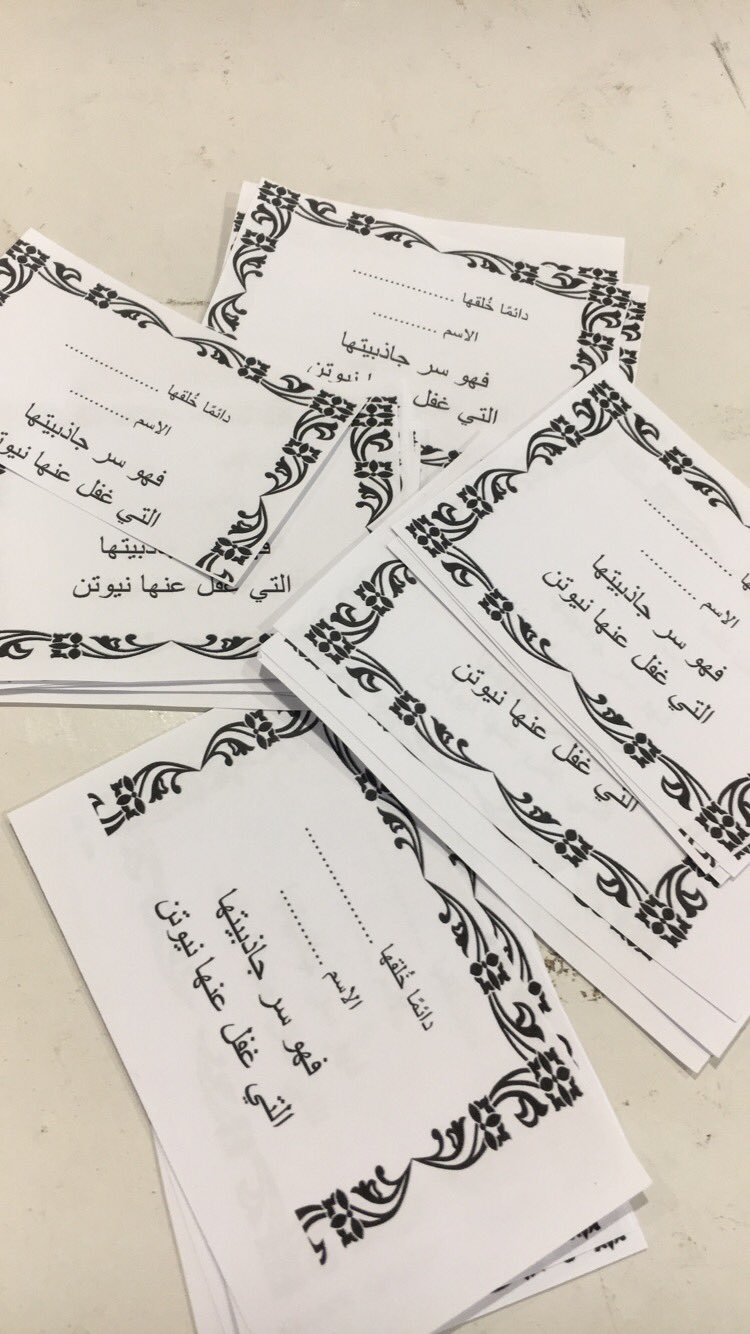 دائمًا خُلقها ....................
الاسم ............
فهو سر جاذبيتها
التي غفل نيوتن
دائمًا خُلقها ....................
الاسم ............
فهو سر جاذبيتها
التي غفل عنها نيوتن
التي غفل عنها نيوتن
الاسم ............
فهو سر جاذبيتها
التي غفل عنها نيوتن
التي غفل عنها نيوتن
دائمًا خُلقها ....................
الاسم ............
فهو سر جاذبيتها
التي غفل عنها نيوتن